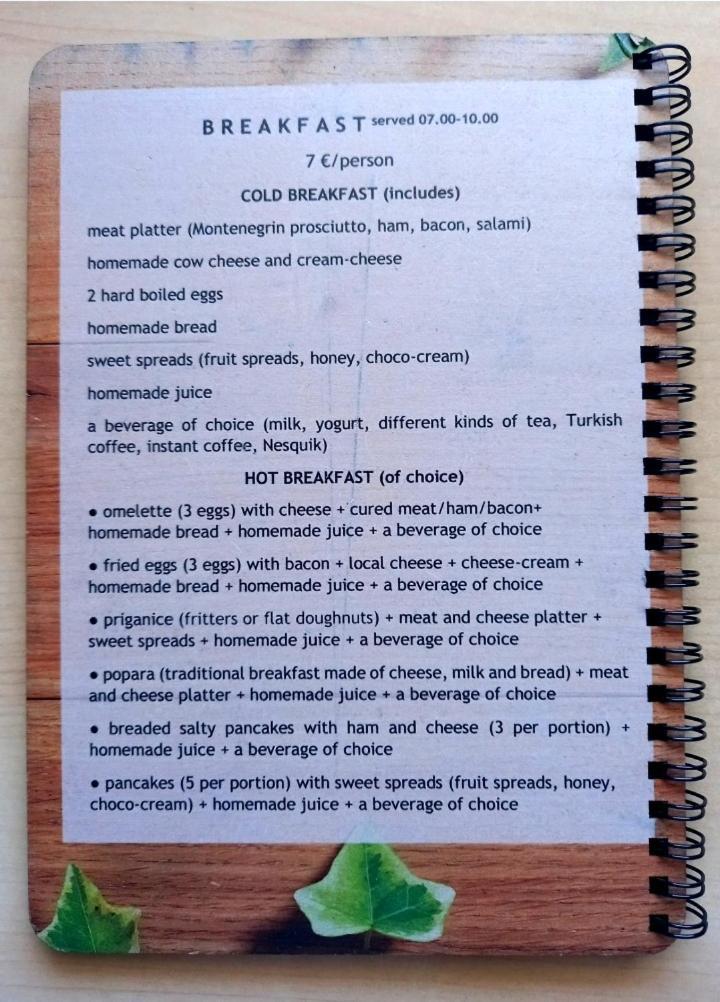 BREAKFAST served 07.00-10.00
7 €/person
COLD BREAKFAST (includes)
meat platter (Montenegrin prosciutto, ham, bacon, salami)
homemade cow cheese and cream-cheese
2 hard boiled eggs
homemade bread
sweet spreads (fruit spreads, honey, choco-cream)
homemade juice
a beverage of choice (milk, yogurt, different kinds of tea, Turkish
coffee, instant coffee, Nesquik)
HOT BREAKFAST (of choice)
• omelette (3 eggs) with cheese + cured meat/ham/bacon+
homemade bread + homemade juice + a beverage of choice
• fried eggs (3 eggs) with bacon + local cheese + cheese-cream +
homemade bread + homemade juice + a beverage of choice
• priganice (fritters or flat doughnuts) + meat and cheese platter +
sweet spreads + homemade juice + a beverage of choice
• popara (traditional breakfast made of cheese, milk and bread) + meat
and cheese platter + homemade juice + a beverage of choice
• breaded salty pancakes with ham and cheese (3 per portion) +
homemade juice + a beverage of choice
• pancakes (5 per portion) with sweet spreads (fruit spreads, honey,
choco-cream) + homemade juice + a beverage of choice